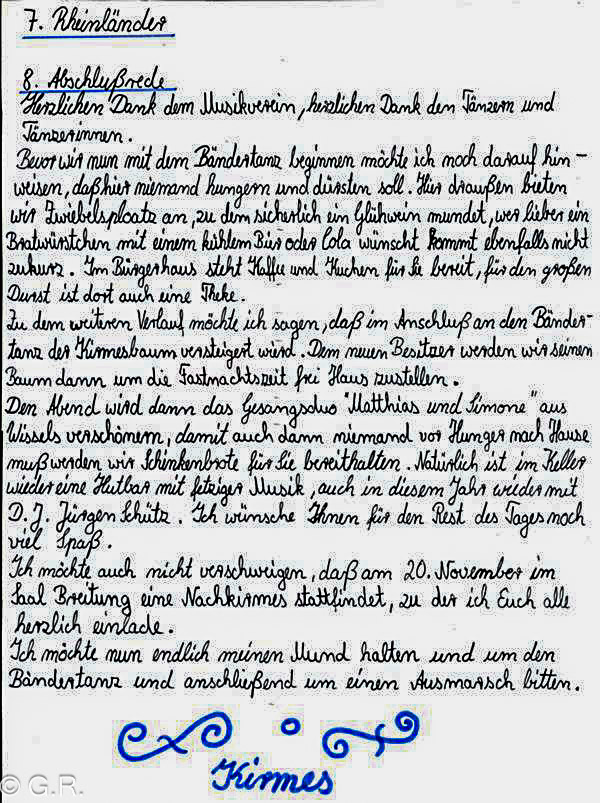 7. Rheinländer
8. Abschlußrede
Herzlichen Dank dem Musikverein, herzlichen Dank den Tänzern und
Tänzerinnen.
Bevor wir nun mit dem Bändertanz beginnen möchte ich noch darauf hin-
weisen, daß hier niemand hungern und dürsten soll. Hier draußen bieten
wir Zwiebelsploatz an, zu dem sicherlich ein Glühwein mundet, wer lieber ein
Bratwürstchen mit einem kühlem Bier oder Cola wünscht kommt ebenfalls nicht
zukurz. Im Bürgerhaus steht Kaffee und Kuchen für Sie bereit, für den großen
Durst ist dort auch eine Theke.
Zu dem weiteren Verlauf möchte ich sagen, daß im Anschluß an den Bänder-
tanz der Kirmesbaum versteigert wird. Dem neuen Besitzer werden wir seinen
Baum dann um die Fastnachtszeit frei Haus zustellen.
Den Abend wird dann das Gesangsduo "Matthias und Simone" aus
Wissels verschönern, damit auch dann niemand vor Hunger nach Hause
muß werden wir Schinkenbrote für Sie bereithalten. Natürlich ist im Keller
wieder eine Hutbar mit fetziger Musik, auch in diesem Jahr wieder mit
D.J. Jürgen Schütz. Ich wünsche Ihnen für den Rest des Tages noch
viel Spaß.
Ich möchte auch nicht verschweigen, daß am 20. November im
Saal Breitung eine Nachkirmes stattfindet, zu der ich Euch alle
herzlich einlade.
Ich möchte nun endlich meinen Mund halten und um den
Bändertanz und anschließend um einen Ausmarsch bitten.
Kirmes
© G.R.